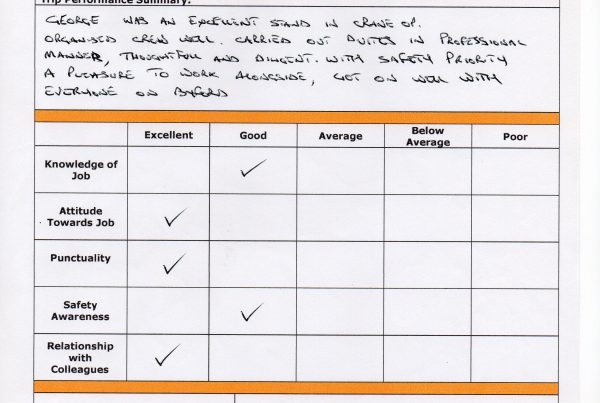 Trip Performance Summary:
GEORGE WAS AN EXCELLENT STAND IN CRANE OP.
ORGANISED CREW WELL. CARRIED OUT DUTIES IN PROFESSIONAL
MANNER, THOUGHTFULL AND DILIGENT. WITH SAFETY PRIORITY
A PLEASURE TO WORK ALONGSIDE, GOT ON WELL WITH
EVERYONE ON BYFORD
Excellent Good Average Below Average Poor
Knowledge of
Job
Attitude
Towards Job
Punctuality
Safety
Awareness
Relationship
with
Colleagues